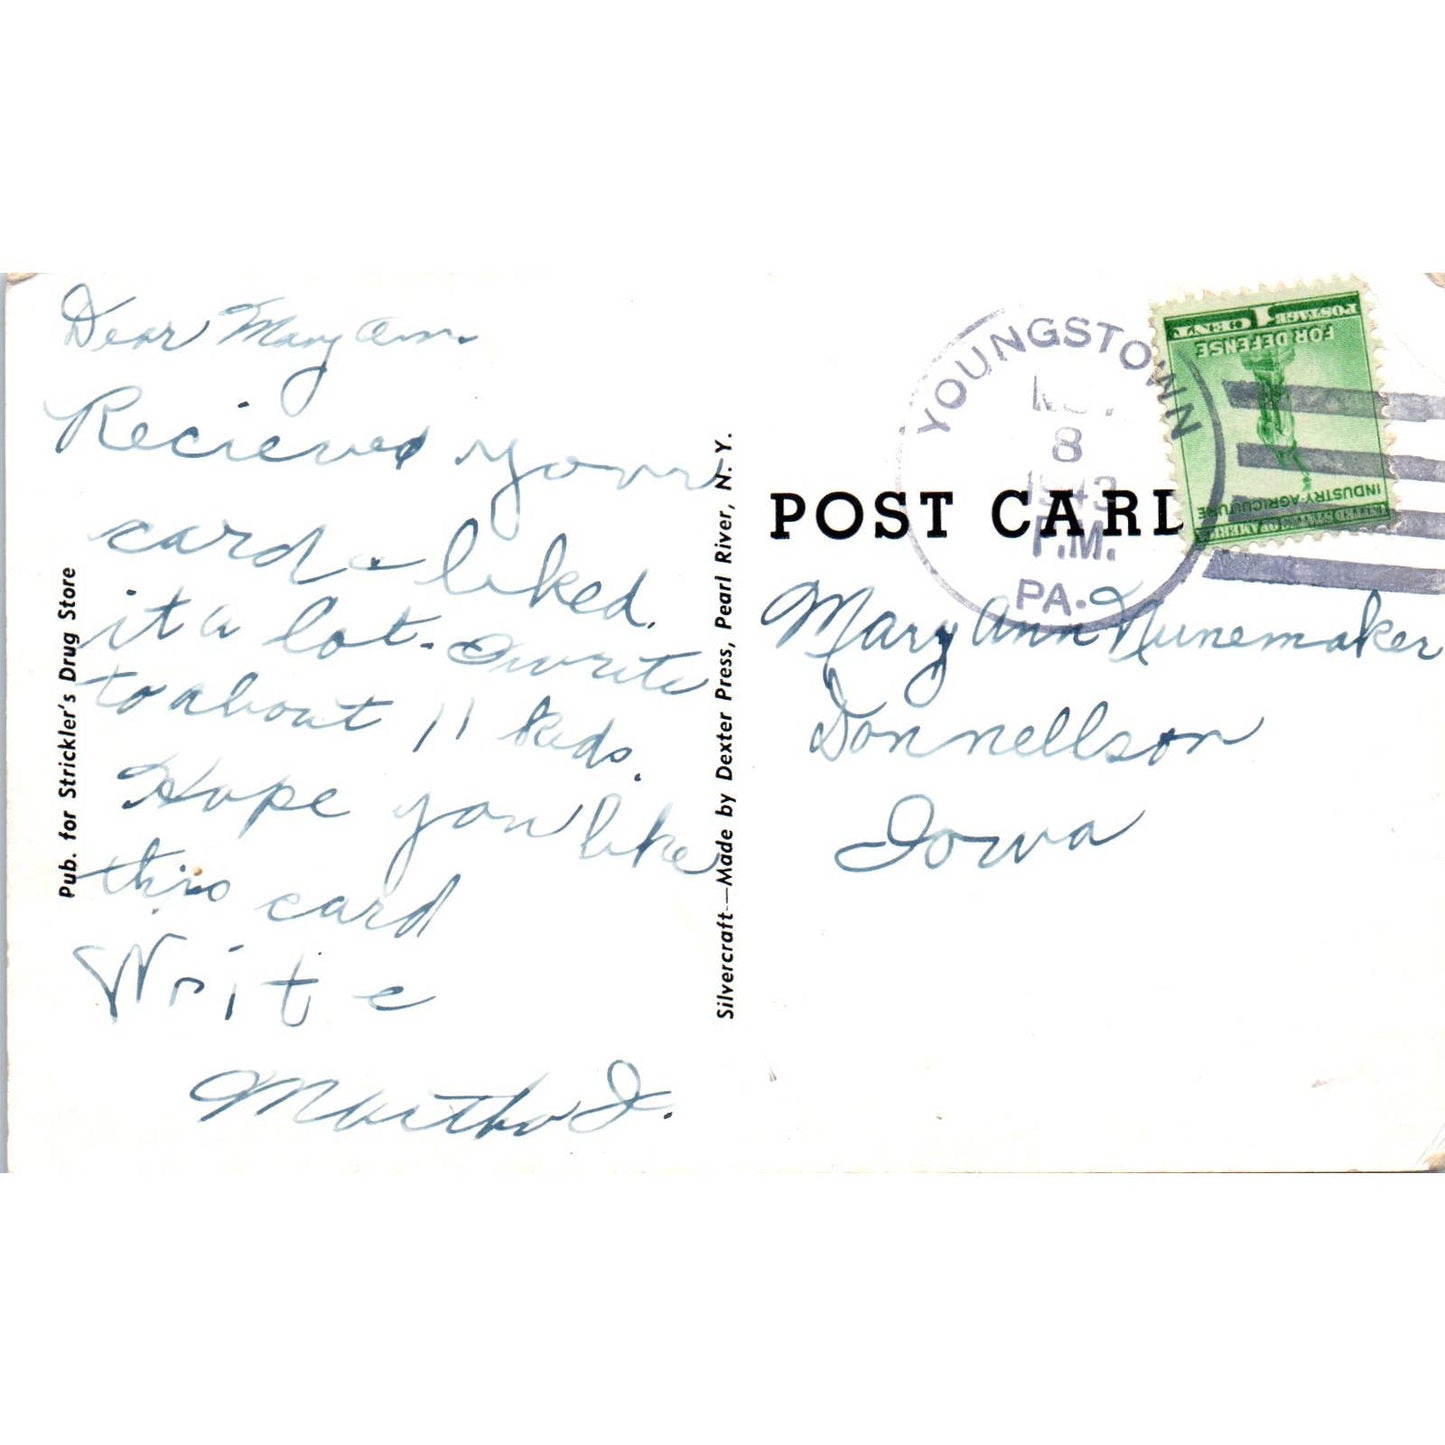 Dear Mary Ann.
Recieved your
card & liked
it a lot. I write
to about 11 kids.
Hope you like
this card
Write
Martha J.
Pub. for Strickler's Drug Store
Silvercraft—Made by Dexter Press, Pearl River, N. Y.
POST CARD
YOUNGSTOWN
8
1943
P.M.
PA.
1 CENT
POSTAGE
FOR DEFENSE
INDUSTRY AGRICULTURE
UNITED STATES OF AMERICA
Mary Ann Nunemaker
Donnellson
Iowa